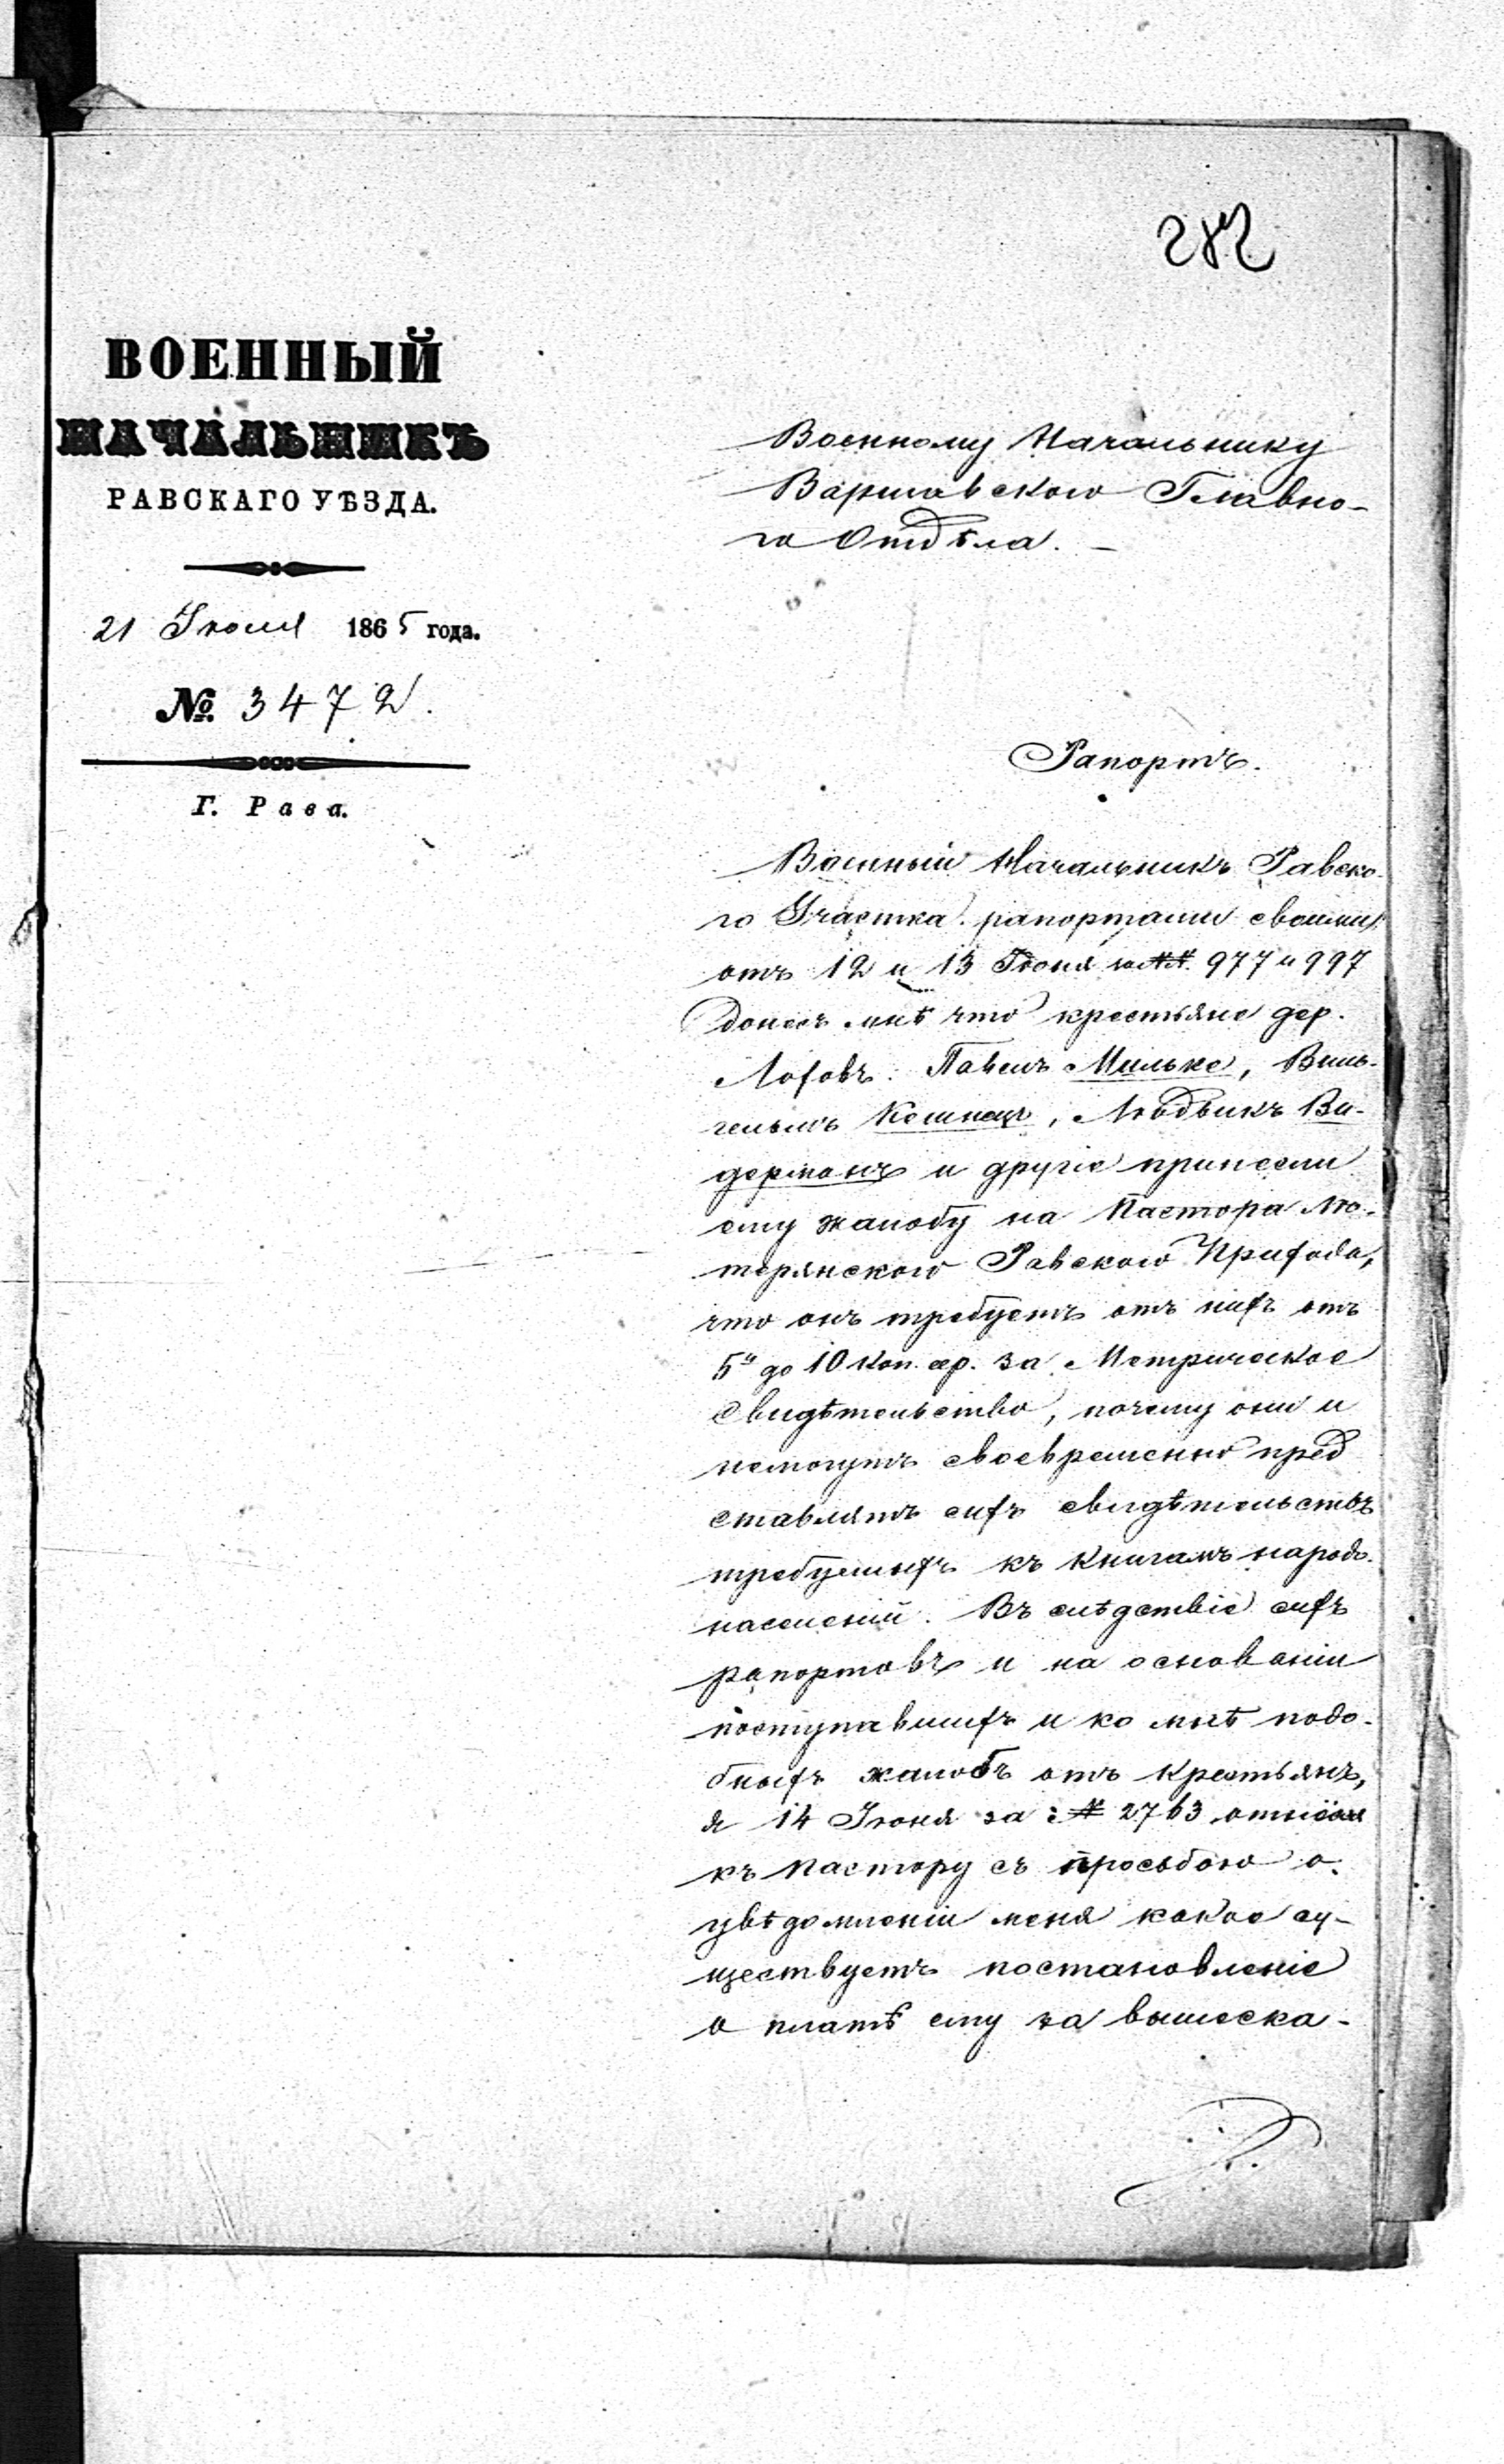 282
ВОЕННЫЙ
НАЧАЛЬНИКЪ
РАВСКАГО УѢЗДА.
21 Июля 1865 года.
№ 3472.
Г. Рава.
Военному Начальнику
Варшавского Главно-
го Отдѣла. –
Рапортъ.
Военный Начальникъ Равско-
го Участка рапортами своими
отъ 12 и 13 Июня за №№ 977 и 997
донесъ мнѣ что крестьяне дер.
Павелъ Мильке, Виль-
гельмъ, Людвикъ Ви-
дерманъ и другіе принесли
ему жалобу на Пастора Лю-
терянского Равского Прихода,
что онъ требуетъ отъ нихъ отъ
5и до 10 коп. сер. за Метрическое
свидѣтельство, почему они и
немогутъ своевременно пред
ставлять сихъ свидѣтельствъ
требуемыхъ къ книгамъ народо-
населеній. Въ слѣдствіе сихъ
рапортовъ и на основаніи
поступавшихъ и ко мнѣ подо-
бныхъ жалобъ отъ крестьянъ,
я 14 Июня за № 2763
къ Пастору съ просьбою о
увѣдомленіи меня какое су-
ществуетъ постановленіе
о платѣ ему за вышеска-